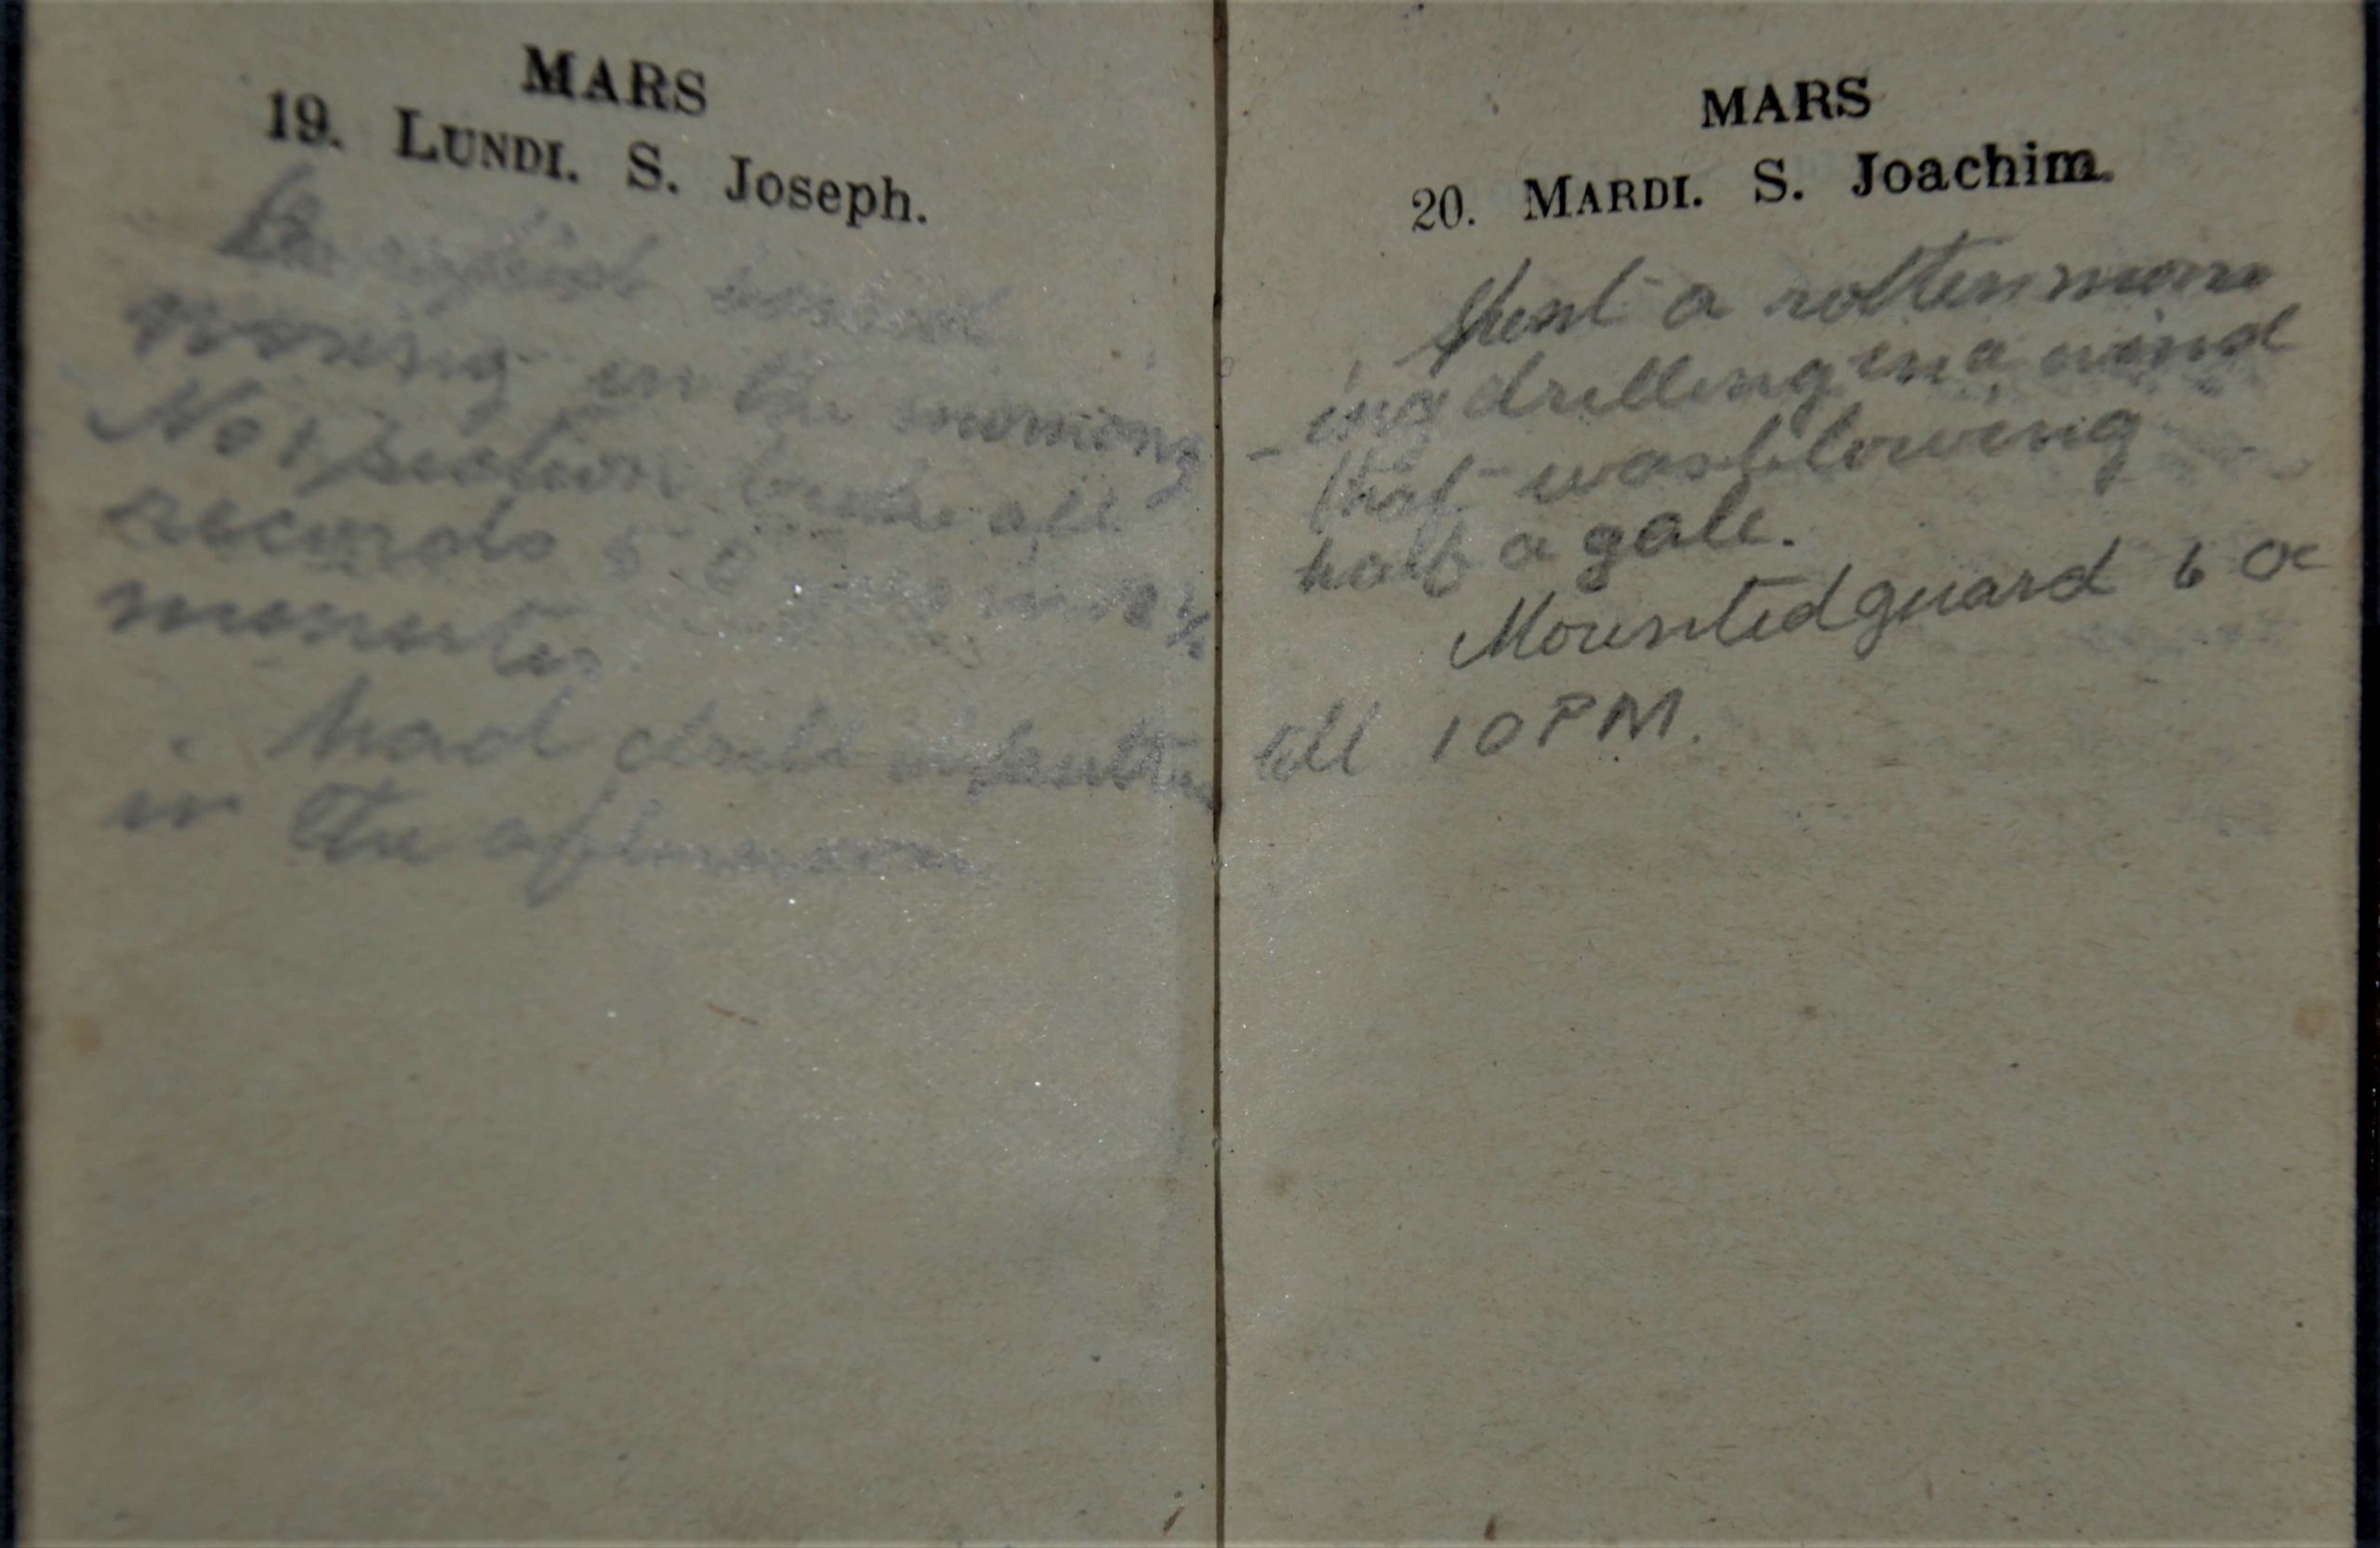 MARS
19. LUNDI. S. Joseph.
in the morning
No 1 section broke all
records 5 0
minutes.
had drill
in the afternoon
MARS
20. MARDI. S. Joachim.
Spent a rotten morn
- ing drilling in a wind
that was blowing
half a gale.
Mounted guard 6 oc
till 10 PM.